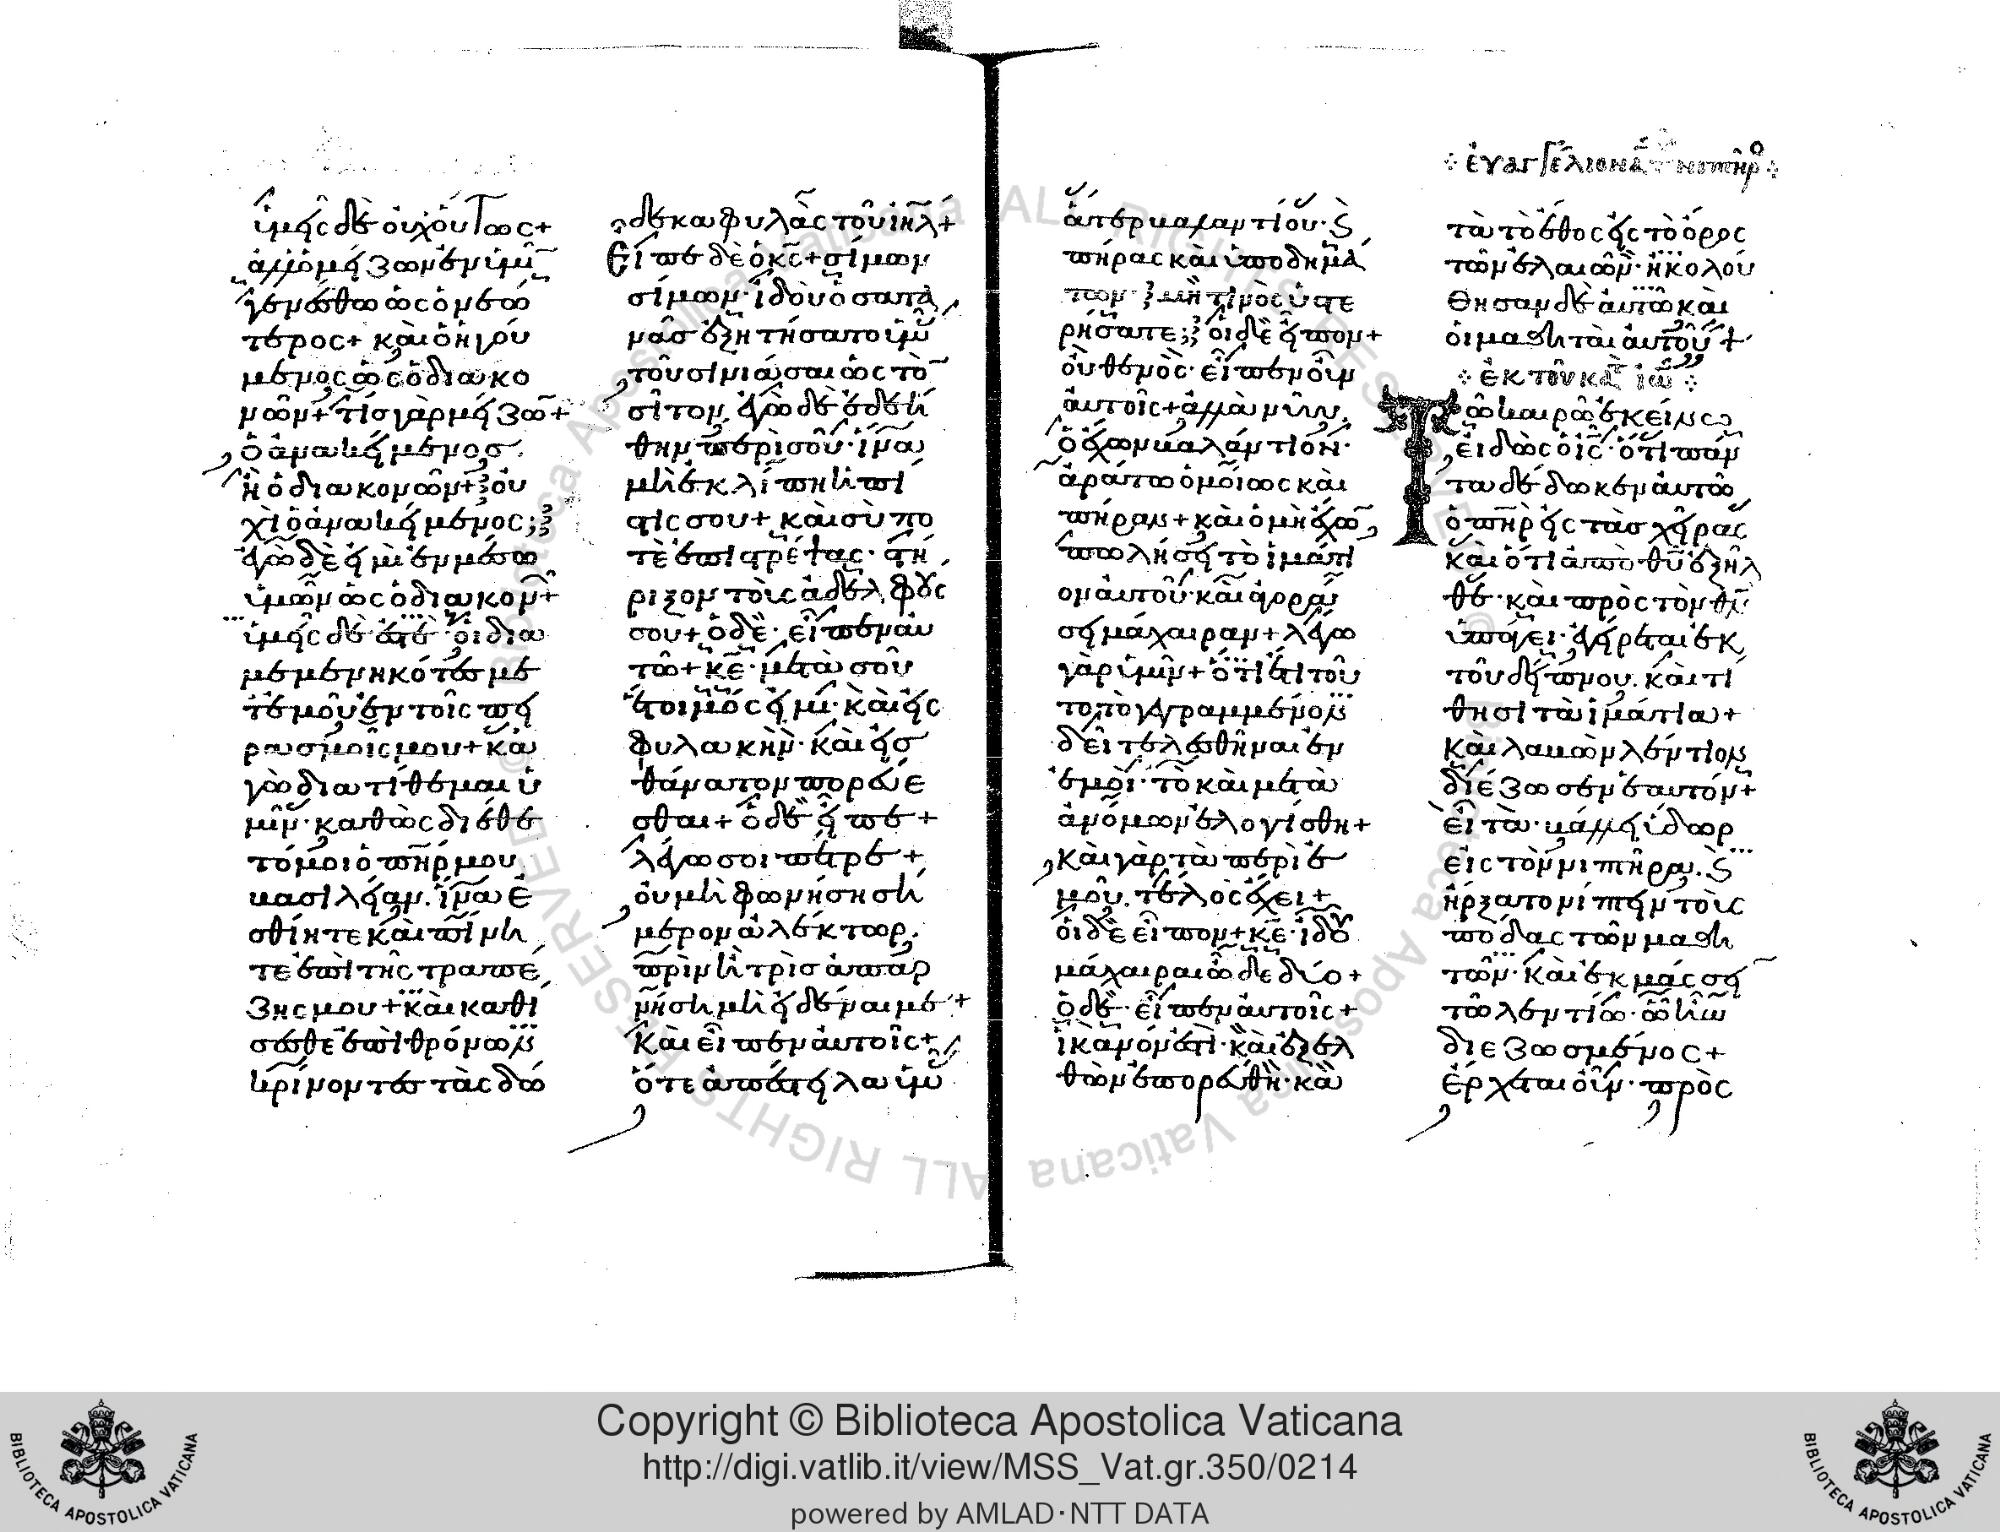 ὑμεῖς δὲ οὐχ οὕτως+
ἀλλ' ὁ μείζων ἐν ὑμῖ
γενέσθω ὡς ὁ νεώ
τερος+ καὶ ὁ ἡγού
μενος ὡς ὁ διακο
νῶν+ τίς γὰρ μείζω+
ὁ ἀνακείμενος.
ἢ ὁ διακονῶν+ οὐ
χὶ ὁ ἀνακείμενος;
ἐγὼ δὲ εἰμὶ ἐν μέσω
ὑμῶν ὡς ὁ διακον+
ὑμεῖς δὲ ἐστὲ οἱ δια
μεμενηκότες με
τ' ἐμοῦ ἐν τοῖς πει
ρασμοῖς μου+ κἀ
γὼ διατίθεμαι ὑ
μῖν· καθὼς διέθε
τό μοι ὁ πηρ μου
βασιλείαν. ἵνα ἐ
σθίητε καὶ πίνη
τε ἐπὶ τῆς τραπέ
ζης μου+ καὶ καθί
σεσθε ἐπὶ θρόνων
κρίνοντες τὰς δώ
δεκα φυλὰς τοῦ ιηλ+
Εἶπε δὲ ὁ κς+ σίμων
σίμων· ἰδοὺ ὁ σατα
νᾶς ἐξητήσατο ὑμᾶ
τοῦ σινιάσαι ὡς τὸ
σῖτον. ἐγὼ δὲ ἐδεή
θην περὶ σοῦ· ἵνα
μὴ ἐκλίπη ἡ πί
στις σου+ καὶ σὺ πο
τὲ ἐπιστρέψας· στή
ριξον τοὺς ἀδελφούς
σου+ ὁ δὲ· εἶπεν αὐ
τῶ+ κε· μετὰ σοῦ
ἕτοιμός εἰμι· καὶ εἰς
φυλακὴν· καὶ εἰς
θάνατον πορεύε
σθαι+ ὁ δὲ εἶπε+
λέγω σοι πέτρε+
οὐ μὴ φωνήσῃ σή
μερον ἀλέκτωρ.
πρὶν ἢ τρὶς ἀπαρ
νήσῃ μὴ εἰδέναι με+
Καὶ εἶπεν αὐτοῖς+
ὅτε ἀπέστειλα ὑμᾶ
ἄτερ βαλαντίου· κ
πήρας καὶ ὑποδημά
των· μή τινος ὑστε
ρήσατε; οἱ δὲ εἶπον+
οὐθενός· εἶπεν οὖν
αὐτοῖς+ ἀλλὰ νῦν
ὁ ἔχων βαλάντιον·
ἀράτω ὁμοίως καὶ
πήραν+ καὶ ὁ μὴ ἔχω
πωλήσει τὸ ἱμάτι
ον αὐτοῦ· καὶ ἀγορά
σει μάχαιραν+ λέγω
γὰρ ὑμῖν+ ὅτι ἔτι τοῦ
το τὸ γεγραμμένον
δεῖ τελεσθῆναι ἐν
ἐμοί· τὸ καὶ μετὰ
ἀνόμων ἐλογίσθη+
καὶ γὰρ τὰ περὶ ἐ
μοῦ. τέλος ἔχει+
οἱ δὲ εἶπον+ κε· ἰδοὺ
μάχαιραι ὧδε δύο+
ὁ δὲ· εἶπεν αὐτοῖς+
ἱκανόν ἐστι· καὶ ἐξελ
θὼν ἐπορεύθη· κα
εὐαγγέλιον νιπτῆρο
τὰ τὸ ἔθος εἰς τὸ ὄρος
τῶν ἐλαιῶν· ἠκολού
θησαν δὲ αὐτῶ καὶ
οἱ μαθηταὶ αὐτοῦ+
ἐκ τοῦ κατ ιω
Τῶ καιρῶ ἐκείνω
εἰδὼς ὁ ις· ὅτι πάν
τα δέδωκεν αὐτῶ
ὁ πηρ εἰς τὰς χεῖρας
καὶ ὅτι ἀπὸ θυ ἐξῆλ
θε· καὶ πρὸς τὸν θν
ὑπάγει· ἐγείρεται ἐκ
τοῦ δείπνου. καὶ τί
θησι τὰ ἱμάτια+
Καὶ λαβὼν λέντιον
διέζωσεν ἑαυτόν+
εἶτα· βάλλει ὕδωρ
εἰς τὸν νιπτῆρα. κ
ἤρξατο νίπτειν τοὺς
πόδας τῶν μαθη
τῶν· καὶ ἐκμάσσει
τῶ λεντίω· ὧ ἦν
διεζωσμένος+
ἔρχεται οὖν· πρὸς
Copyright © Biblioteca Apostolica Vaticana
http://digi.vatlib.it/view/MSS_Vat.gr.350/0214
powered by AMLAD·NTT DATA
BIBLIOTECA APOSTOLICA VATICANA
BIBLIOTECA APOSTOLICA VATICANA